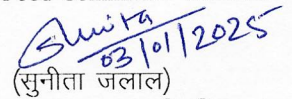 Sunita
03/01/2025
(सुनीता जलाल)